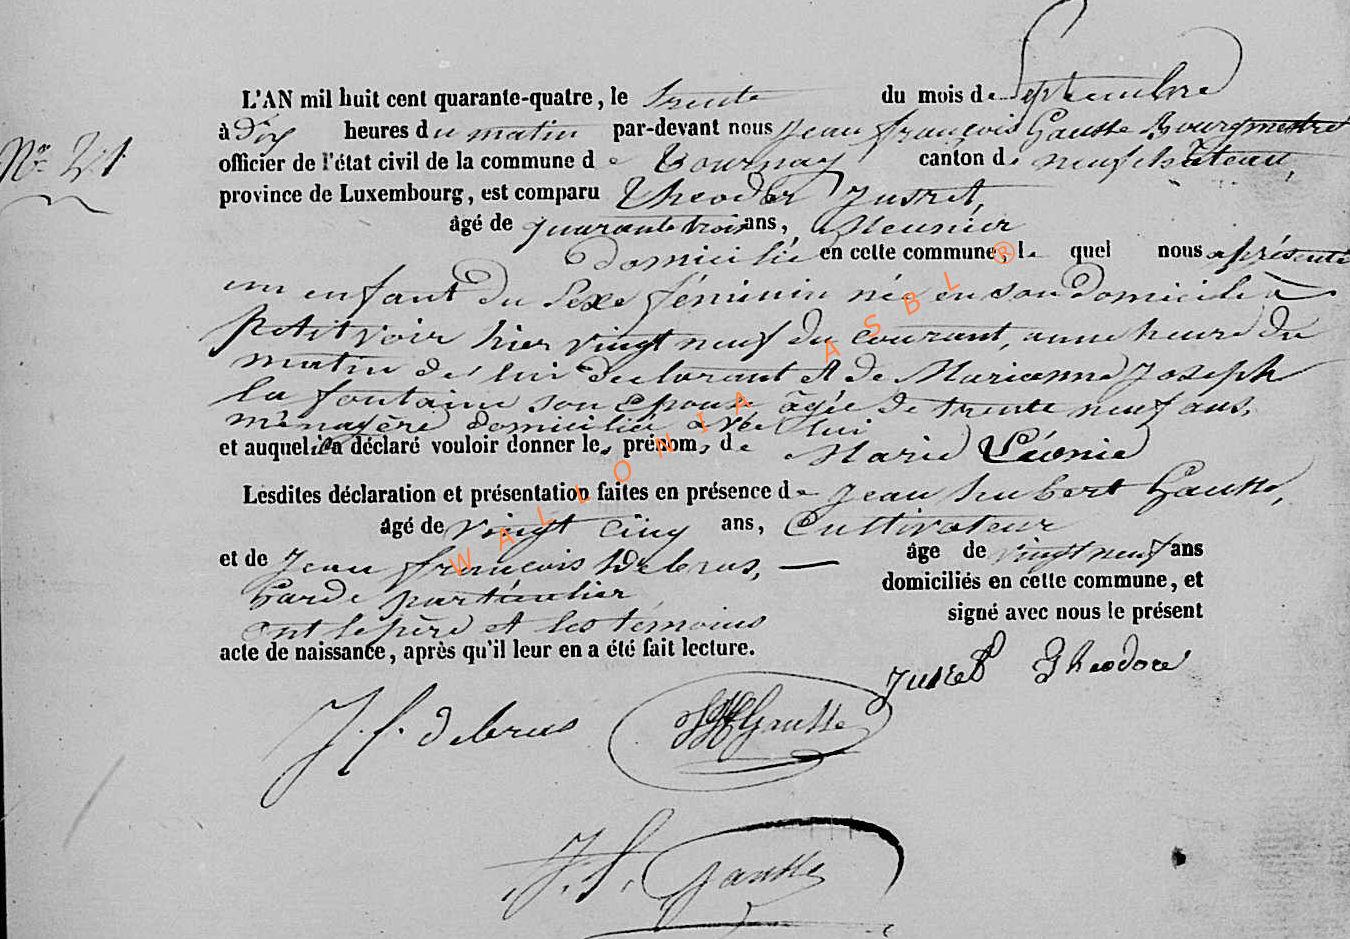 L'AN mil huit cent quarante-quatre, le trente du mois de Septembre
à dix heures du matin par-devant nous Jean françois Gausse Bourgmestre
N° 21
officier de l'état civil de la commune de Tournay canton de neufchâteau,
province de Luxembourg, est comparu Theoder Jusret,
âgé de quarante trois ans, Meunier
domicilié en cette commune, le quel nous a présenté
un enfant du Sexe féminin née en son domicile à
petitvoir hier vingt neuf du courant, a une heure du
matin de lui declarant et de Marianne Joseph
la fontaine son Epouse âgée de trente neuf ans,
ménagère domiciliée avec lui
et auquel il a déclaré vouloir donner les prénoms de Marie Léonie
Lesdites déclaration et présentation faites en présence de Jean hubert Gausse,
âgé de vingt cinq ans, Cultivateur
et de Jean françois Debrus, — âgé de vingt neuf ans
Garde particulier domiciliés en cette commune, et
ont le père et les témoins signé avec nous le présent
acte de naissance, après qu'il leur en a été fait lecture.
Jusret Theodore
J. f. debrus
JH Gausse
J. f. Gausse
WALLONIA ASBL ®